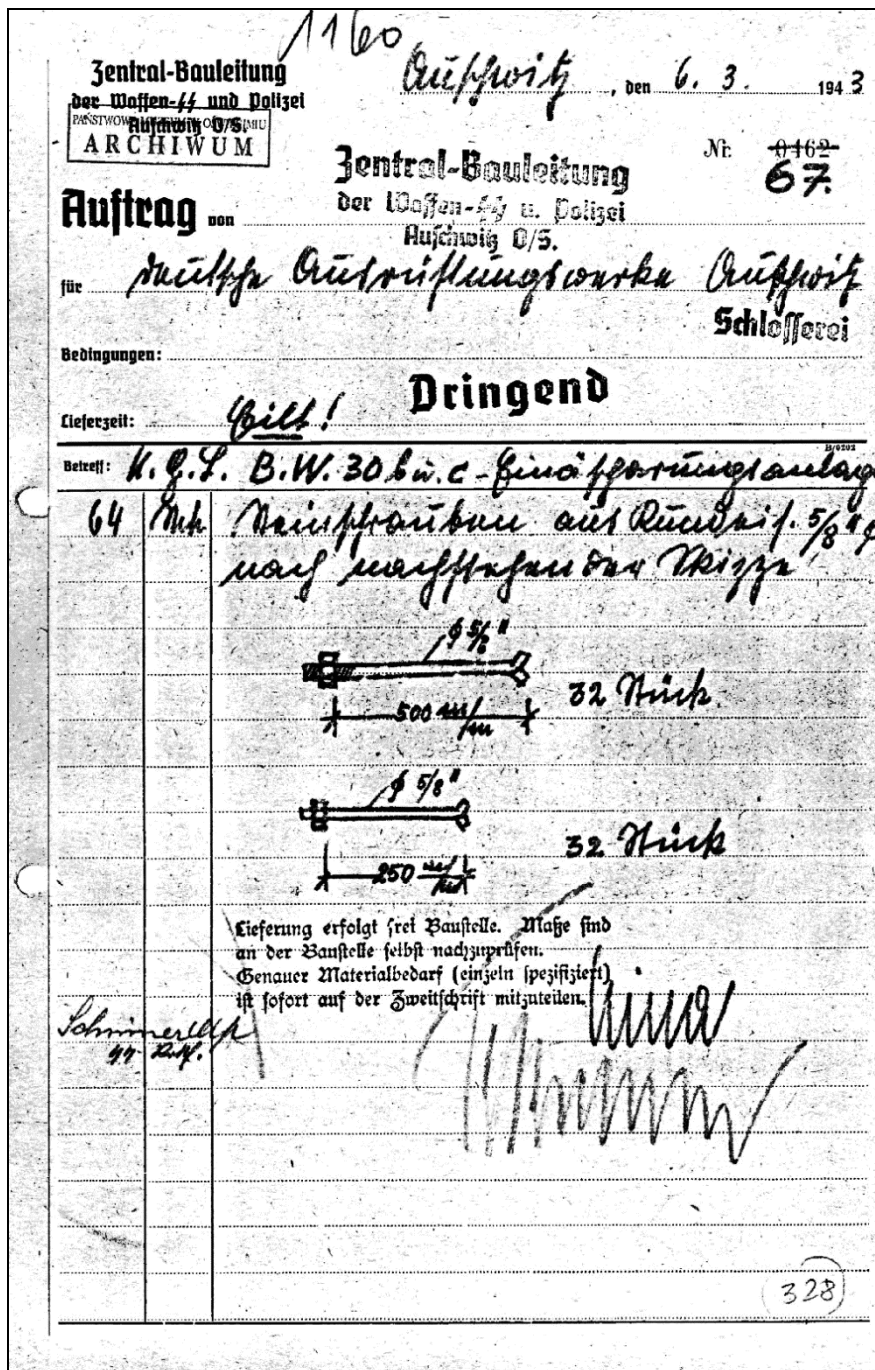 1160
Zentral-Bauleitung
der Waffen-SS und Polizei
Auschwitz O/S.
PAŃSTWOWE
ARCHIWUM
Auschwitz, den 6. 3. 1943
Nr. 0462
67.
Zentral-Bauleitung
der Waffen-SS u. Polizei
Auschwitz O/S.
Auftrag von
für Deutsche Ausrüstungswerke Auschwitz
Schlosserei
Bedingungen:
Dringend
Lieferzeit: Eilt!
Betreff: K.G.L. B.W. 30 b u. c - Einäscherungsanlage
64 Stck Steinschrauben aus Rundeis. 5/8" φ
nach nachstehender Skizze
φ 5/8"
500 m/m
32 Stück
φ 5/8"
250 m/m
32 Stück
Lieferung erfolgt frei Baustelle. Maße sind
an der Baustelle selbst nachzuprüfen.
Genauer Materialbedarf (einzeln spezifiziert)
ist sofort auf der Zweitschrift mitzuteilen.
SS-
328